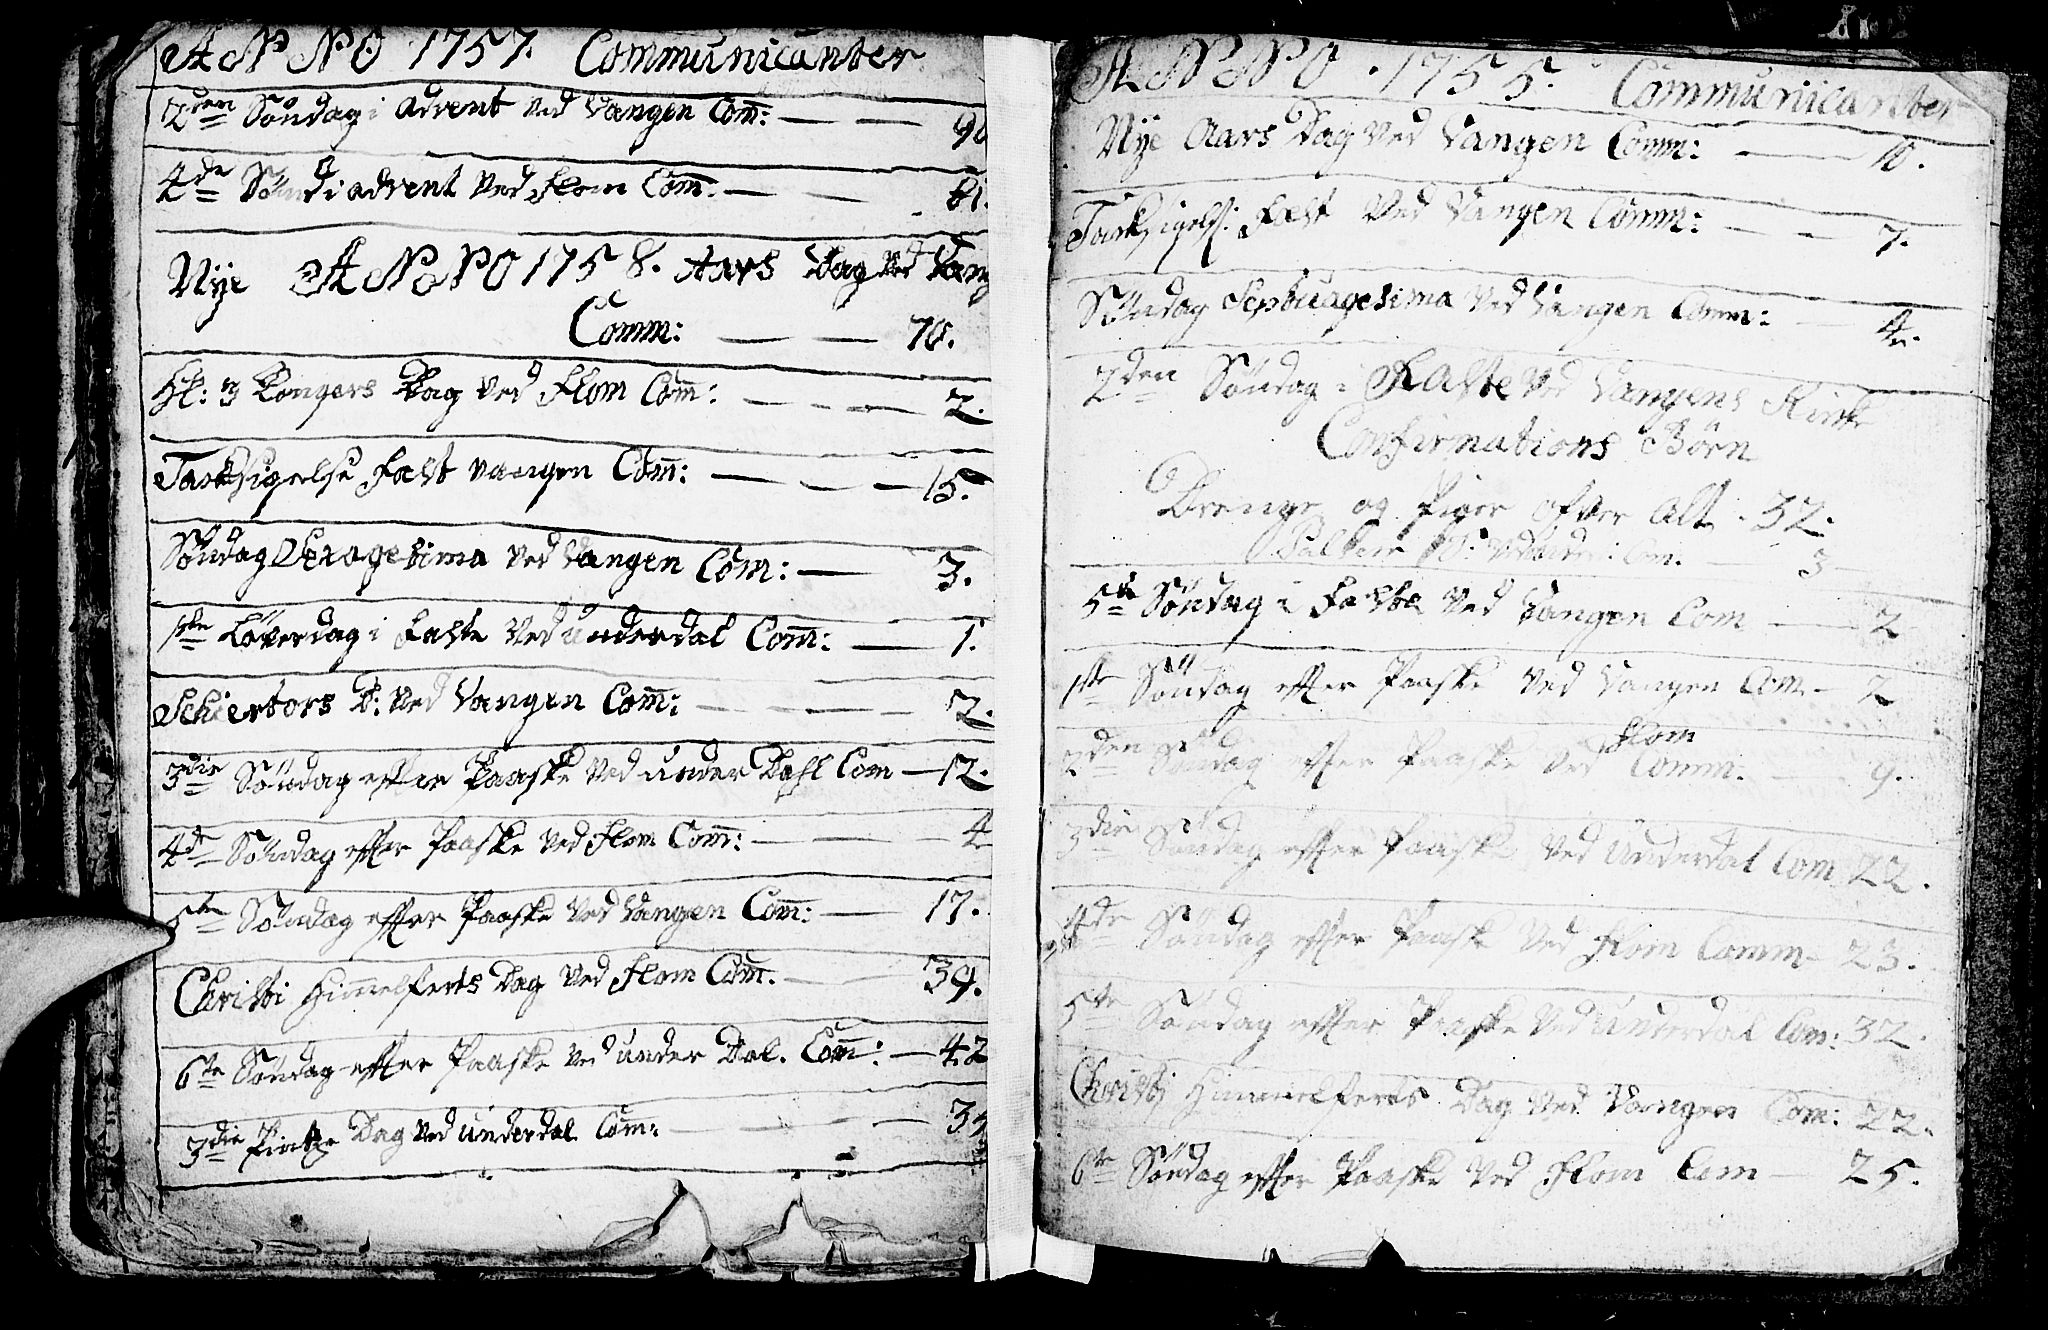 ANNO 1757. Communicanter
2den Søndag i Advent Ved Vangen Com: — — 90
4de Sønd i advent Ved Flom Com: — — 81.
Nye ANNO 1758. Aars Dag Ved Vang
Comm: — — 70.
Hl: 3 Kongers Dag Ved Flom Com: — — — 2.
Taksigelse Fæst Vangen Com: — — — 15.
Søndag Sexagesima Ved Vangen Com: — 3.
1ste Løverdag i Faste Ved Underdal Com: — 1.
Schiertors D: Ved Vangen Com: — — — 2.
3die Søndag effter Paaske Ved under Dahl Com — 12.
4de Søndag effter Paaske Ved Flom Com: — — 4
5te Søndag effter Paaske Ved Vangen Com: — 17.
Christi Himmelferts Dag Ved Flom Com. — 39.
6te Søndag effter Paaske Ved under Dal. Com: — 42
3die Pintze Dag Ved Underdal Com: — — — 35
ANNO. 1755. Communicanter
Nye Aars Dag Ved Vangen Comm: — 10.
Taksigels: Fæst Ved Vangen Comm: — — 7.
Søndag Septuagesima Ved Vangen Comm: — 4.
2den Søndag i Faste Ved Vangens Kirke
Confirmations Børn
Drenge og Piger ofver Alt. 32.
3
5te Søndag i Faste Ved Vangen Com — 2
1ste Søndag effter Paaske Ved Vangen Com — 2
Flom
2den Søndag effter Paaske Ved Comm. — 9.
3die Søndag effter Paaske Ved Underdal Com 22.
4de Søndag effter Paaske Ved Flom Comm — 23.
5te Søndag effter Paaske Ved Underdal Com: 32.
Christi Himmelferts Dag Ved Vangen Com: 22.
6te Søndag effter Paaske Ved Flom Com — 25.